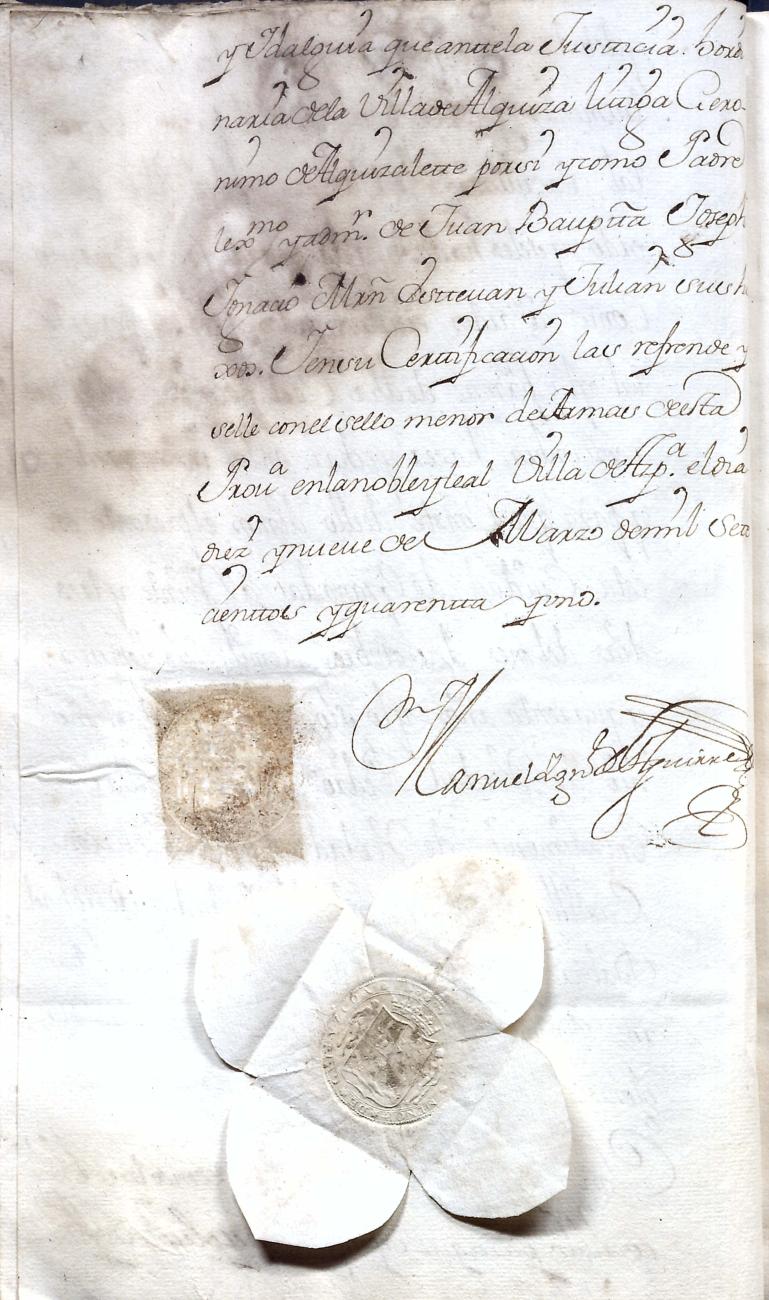 y Idalguia que antte la Justticia hordi
naria de la Villa de Alquiza littiga Gero
nimo de Alquizalette por si y como Padre
lex.mo y adm.r de Juan Bauptta Joseph
Ignacio Mrñ Esttevan y Julian sus h
xos. Ten su Certtificacion las refrende y
selle con el sello menor de Armas de esta
Prou.a en la noble y leal Villa de Azp.a el dia
diez y nueve de Marzo de mil Sete
cienttos y quarentta y uno.
Manuel Ign.o de Aguirre